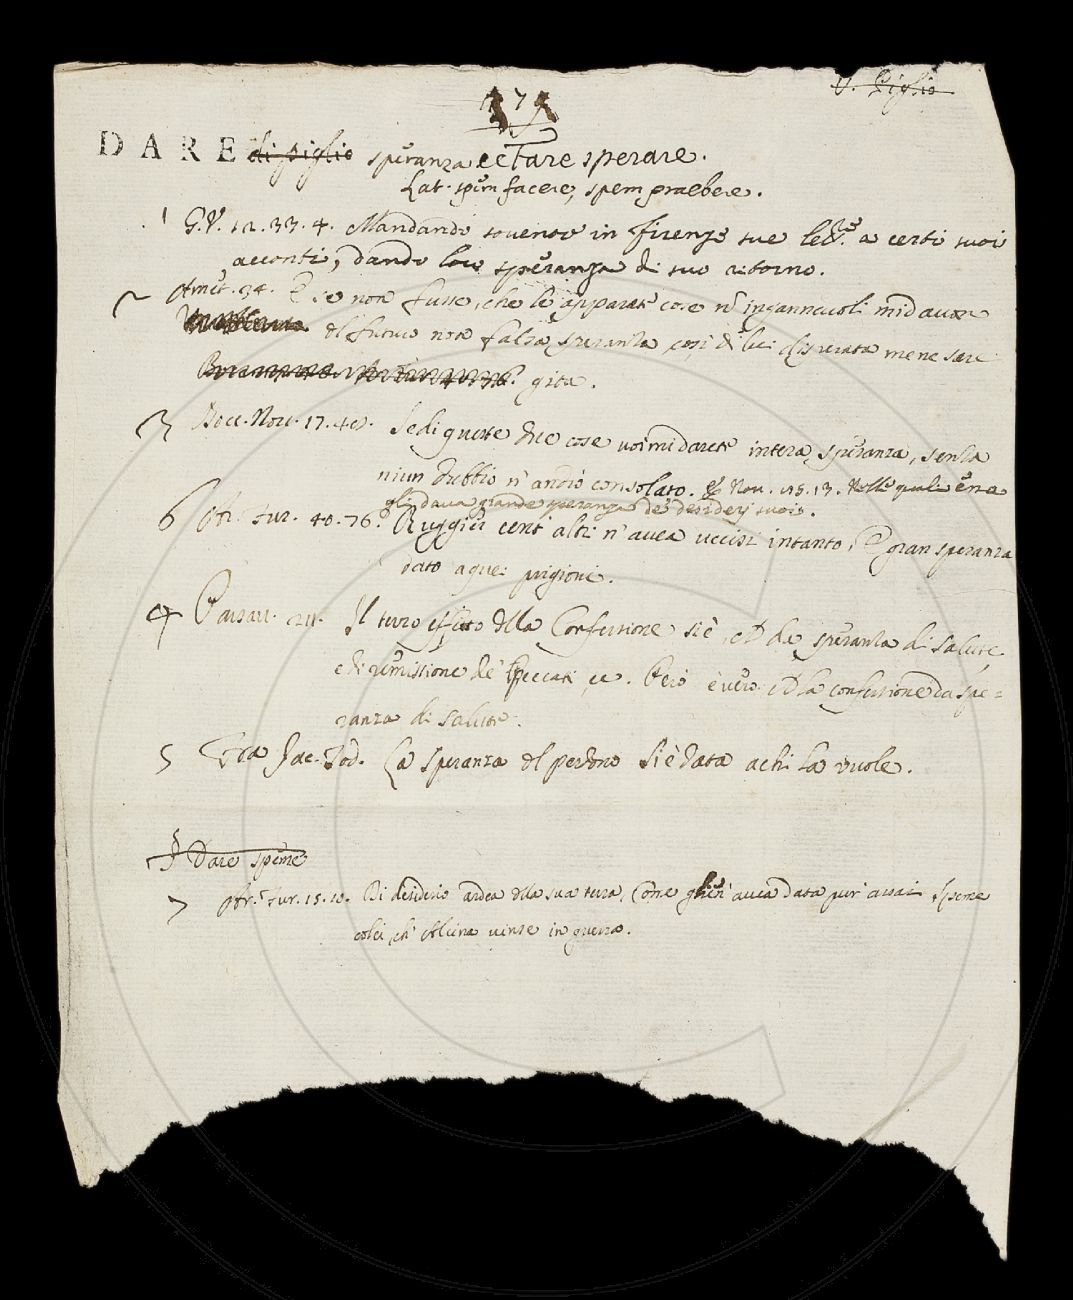 V. Piglio
17
DARE di piglio speranza e Fare sperare.
Lat. spem facere, spem praebere.
1 G.V. 12.33.4. Mandando sovente in firenze sue lettre a certi suoi
acconti, dando loro speranza di suo ritorno.
2 Amet. 34. E se non fusse, che le apparate cose n' ingannevoli mi davan
del futuro non falsa speranza, così di lui disperata me ne sare'
gita.
3 Bocc. Nov. 17.40. Se di queste due cose voi mi darete intera speranza, senza
niun dubbio n' andrò consolato. E Nov. 15.13. Nelle quali era
gli dava grande speranza de' desiderj suoi.
6 Ar. Fur. 40.76. Ruggier cent' altri n' avea uccisi intanto, E gran speranza
dato a quei prigioni.
4 Passav. Il terzo effetto della Confessione si è, che dà speranza di salute,
e di remissione de' peccati, ec. Però è vero che la confessione dà spe=
ranza di salute.
5 Fra Jac. Tod. La speranza del perdono Si è data a chi la vuole.
§ Dare speme
7 Ar. Fur. 15.10. Di desiderio ardea della sua terra, Come gli en' avea data pur' assai Speme
colei, ch' Alcina vinse in guerra.